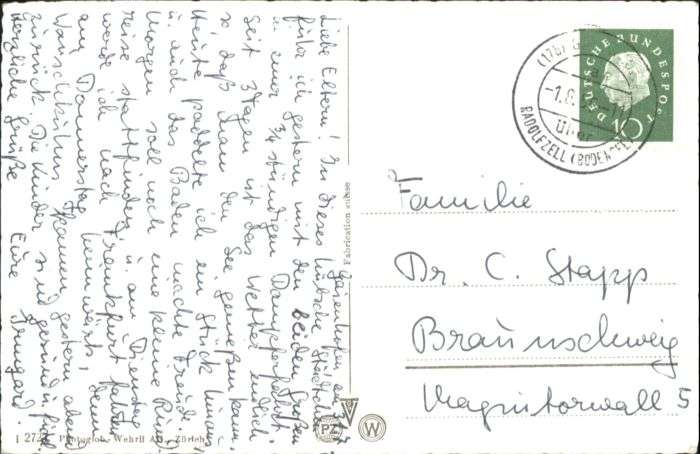 Gaienhofen, am 31.7.
Liebe Eltern! In dieses hübsche Städtchen
fuhr ich gestern mit den beiden Großen
in einer 3/4 stündigen Dampferfahrt.
Seit 3 Tagen ist das Wetter endlich
so, daß man den See genießen kann.
Heute paddelte ich ein Stück hinaus
u. auch das Baden machte Freude.
Morgen soll noch eine kleine Rund
reise stattfinden u. am Dienstag
werde ich nach Frankfurt fahren
am Donnerstag heimwärts, denn
Wunschkilms kamen gestern abend
zurück. Die Kinder sind gesund u. fidel
Herzliche Grüße Eure Irmgard.
Fabrication suisse
I 272 Photoglob-Wehrli A.G. Zürich
PZ
W
DEUTSCHE BUNDESPOST
10
(17b)
-1.8.
RADOLFZELL (BODENSEE)
Familie
Dr. C. Stapp
Braunschweig
Magnitorwall 5